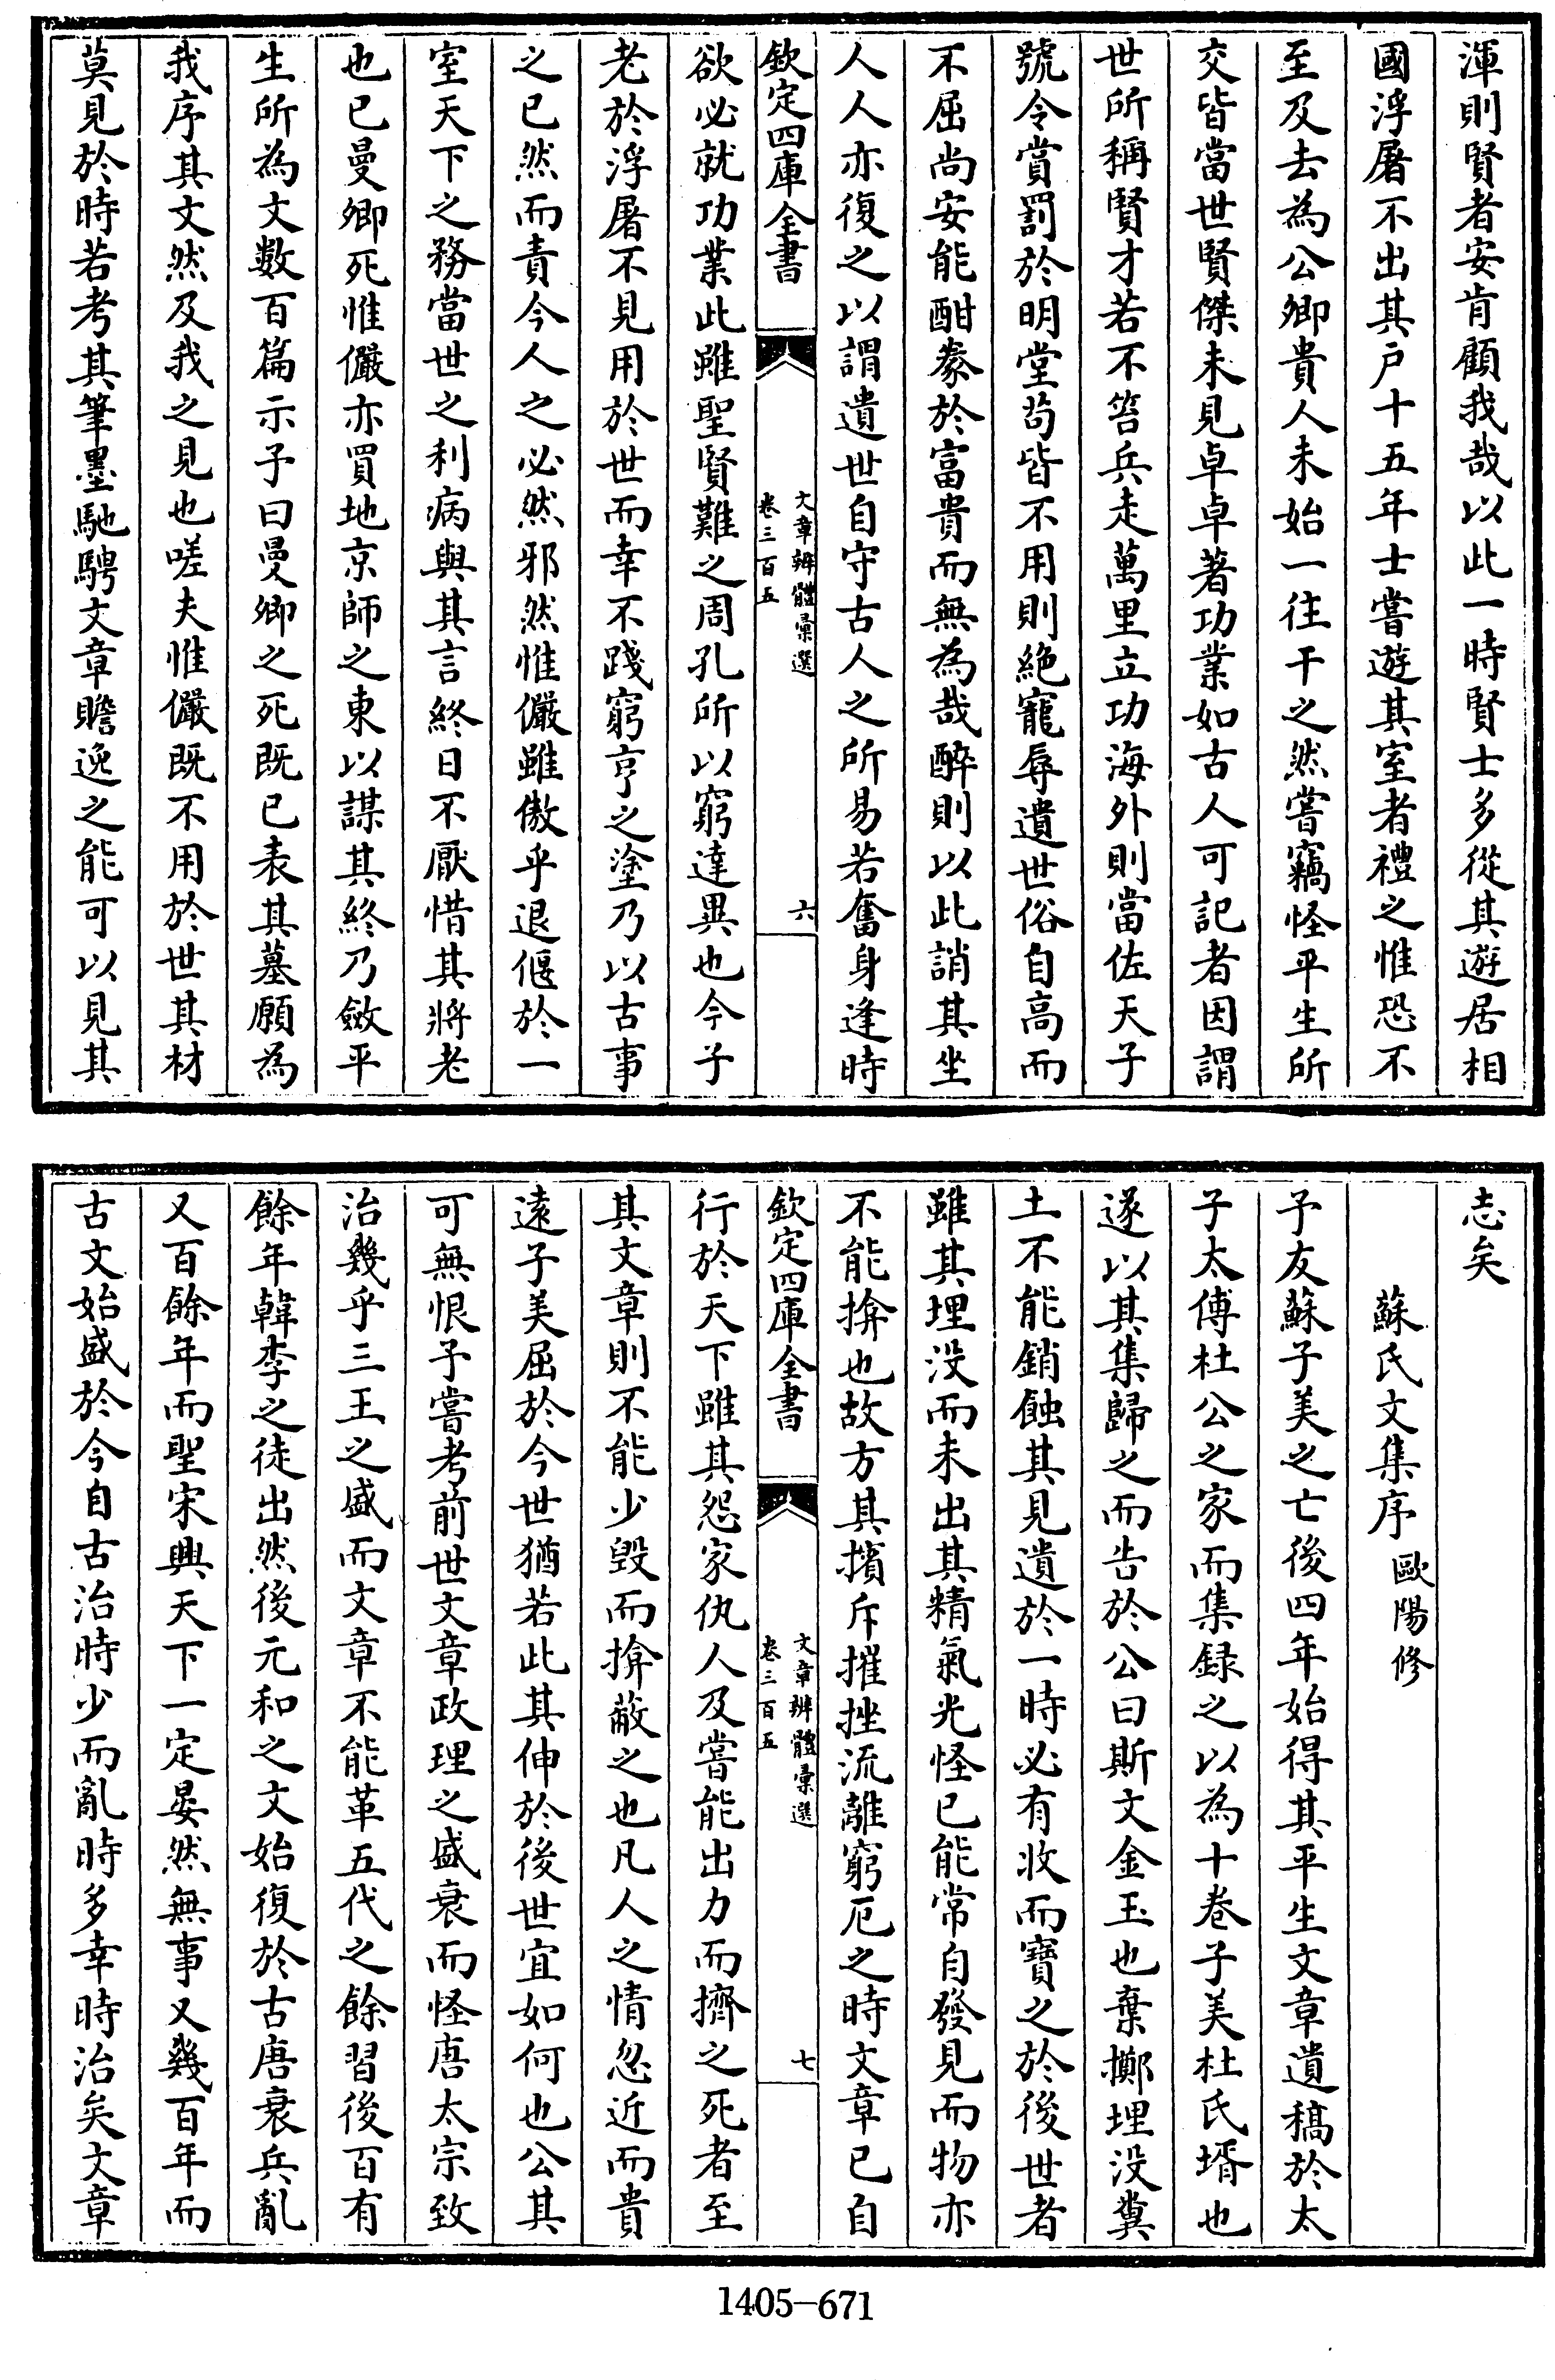 渾則賢者安肯顧我哉以此一時賢士多從其遊居相
國浮屠不出其户十五年士嘗遊其室者禮之惟恐不
至及去為公卿貴人未始一往干之然嘗竊怪平生所
交皆當世賢傑未見卓卓著功業如古人可記者因謂
世所稱賢才若不笞兵走萬里立功海外則當佐天子
號令賞罰於明堂苟皆不用則絶寵辱遺世俗自高而
不屈尚安能酣豢於富貴而無為哉醉則以此誚其坐
人人亦復之以謂遺世自守古人之所易若奮身逢時
欽定四庫全書
文章辨體彙選
卷三百五
六
欲必就功業此雖聖賢難之周孔所以窮達異也今子
老於浮屠不見用於世而幸不踐窮亨之塗乃以古事
之已然而責今人之必然邪然惟儼雖傲乎退偃於一
室天下之務當世之利病與其言終日不厭惜其將老
也已曼卿死惟儼亦買地京師之東以謀其終乃斂平
生所為文數百篇示予曰曼卿之死既已表其墓願為
我序其文然及我之見也嗟夫惟儼既不用於世其材
莫見於時若考其筆墨馳騁文章贍逸之能可以見其
志矣
蘇氏文集序 歐陽修
予友蘇子美之亡後四年始得其平生文章遺稿於太
子太傅杜公之家而集録之以為十卷子美杜氏壻也
遂以其集歸之而告於公曰斯文金玉也棄擲埋没糞
土不能銷蝕其見遺於一時必有收而寶之於後世者
雖其埋没而未出其精氣光怪已能常自發見而物亦
不能揜也故方其擯斥摧挫流離窮厄之時文章已自
欽定四庫全書
文章辨體彙選
卷三百五
七
行於天下雖其怨家仇人及嘗能出力而擠之死者至
其文章則不能少毁而揜蔽之也凡人之情忽近而貴
遠子美屈於今世猶若此其伸於後世宜如何也公其
可無恨予嘗考前世文章政理之盛衰而怪唐太宗致
治幾乎三王之盛而文章不能革五代之餘習後百有
餘年韓李之徒出然後元和之文始復於古唐衰兵亂
又百餘年而聖宋興天下一定晏然無事又幾百年而
古文始盛於今自古治時少而亂時多幸時治矣文章
1405-671